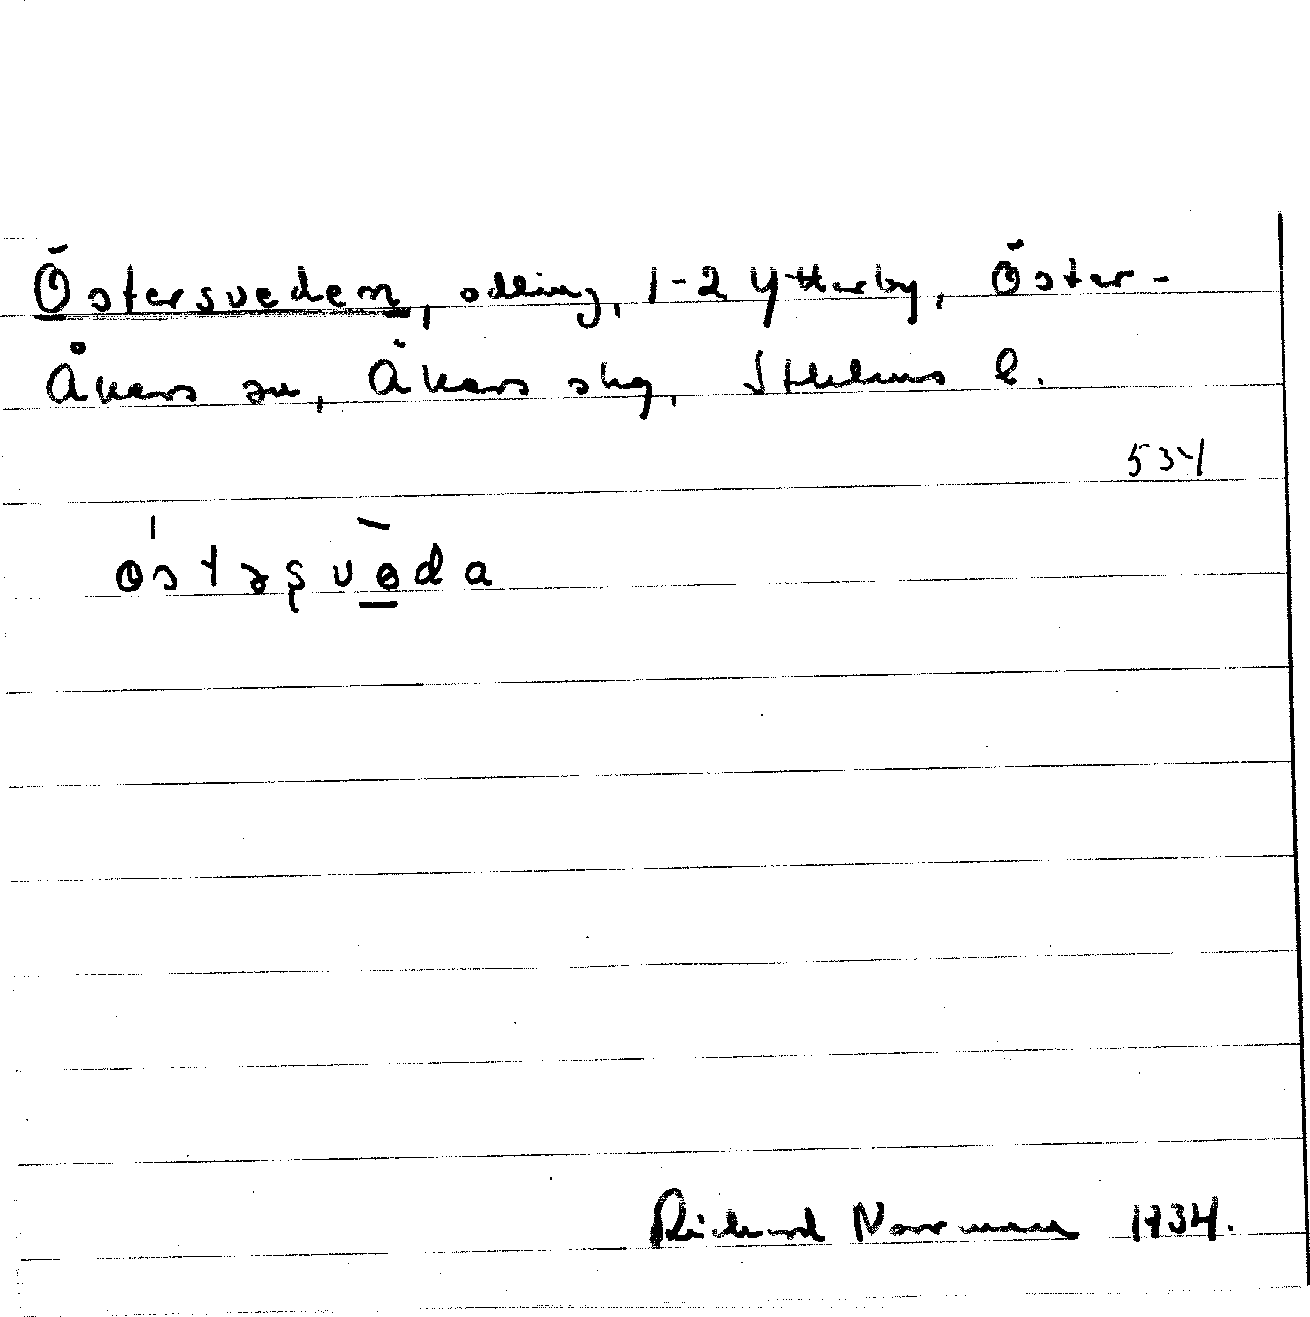 Östersvedem, odling, 1-2 Ytterby, Öster-
Åkers sn, Åkers skg, Sthlms l.
534
östəşveda
Richard Norrman 1934.